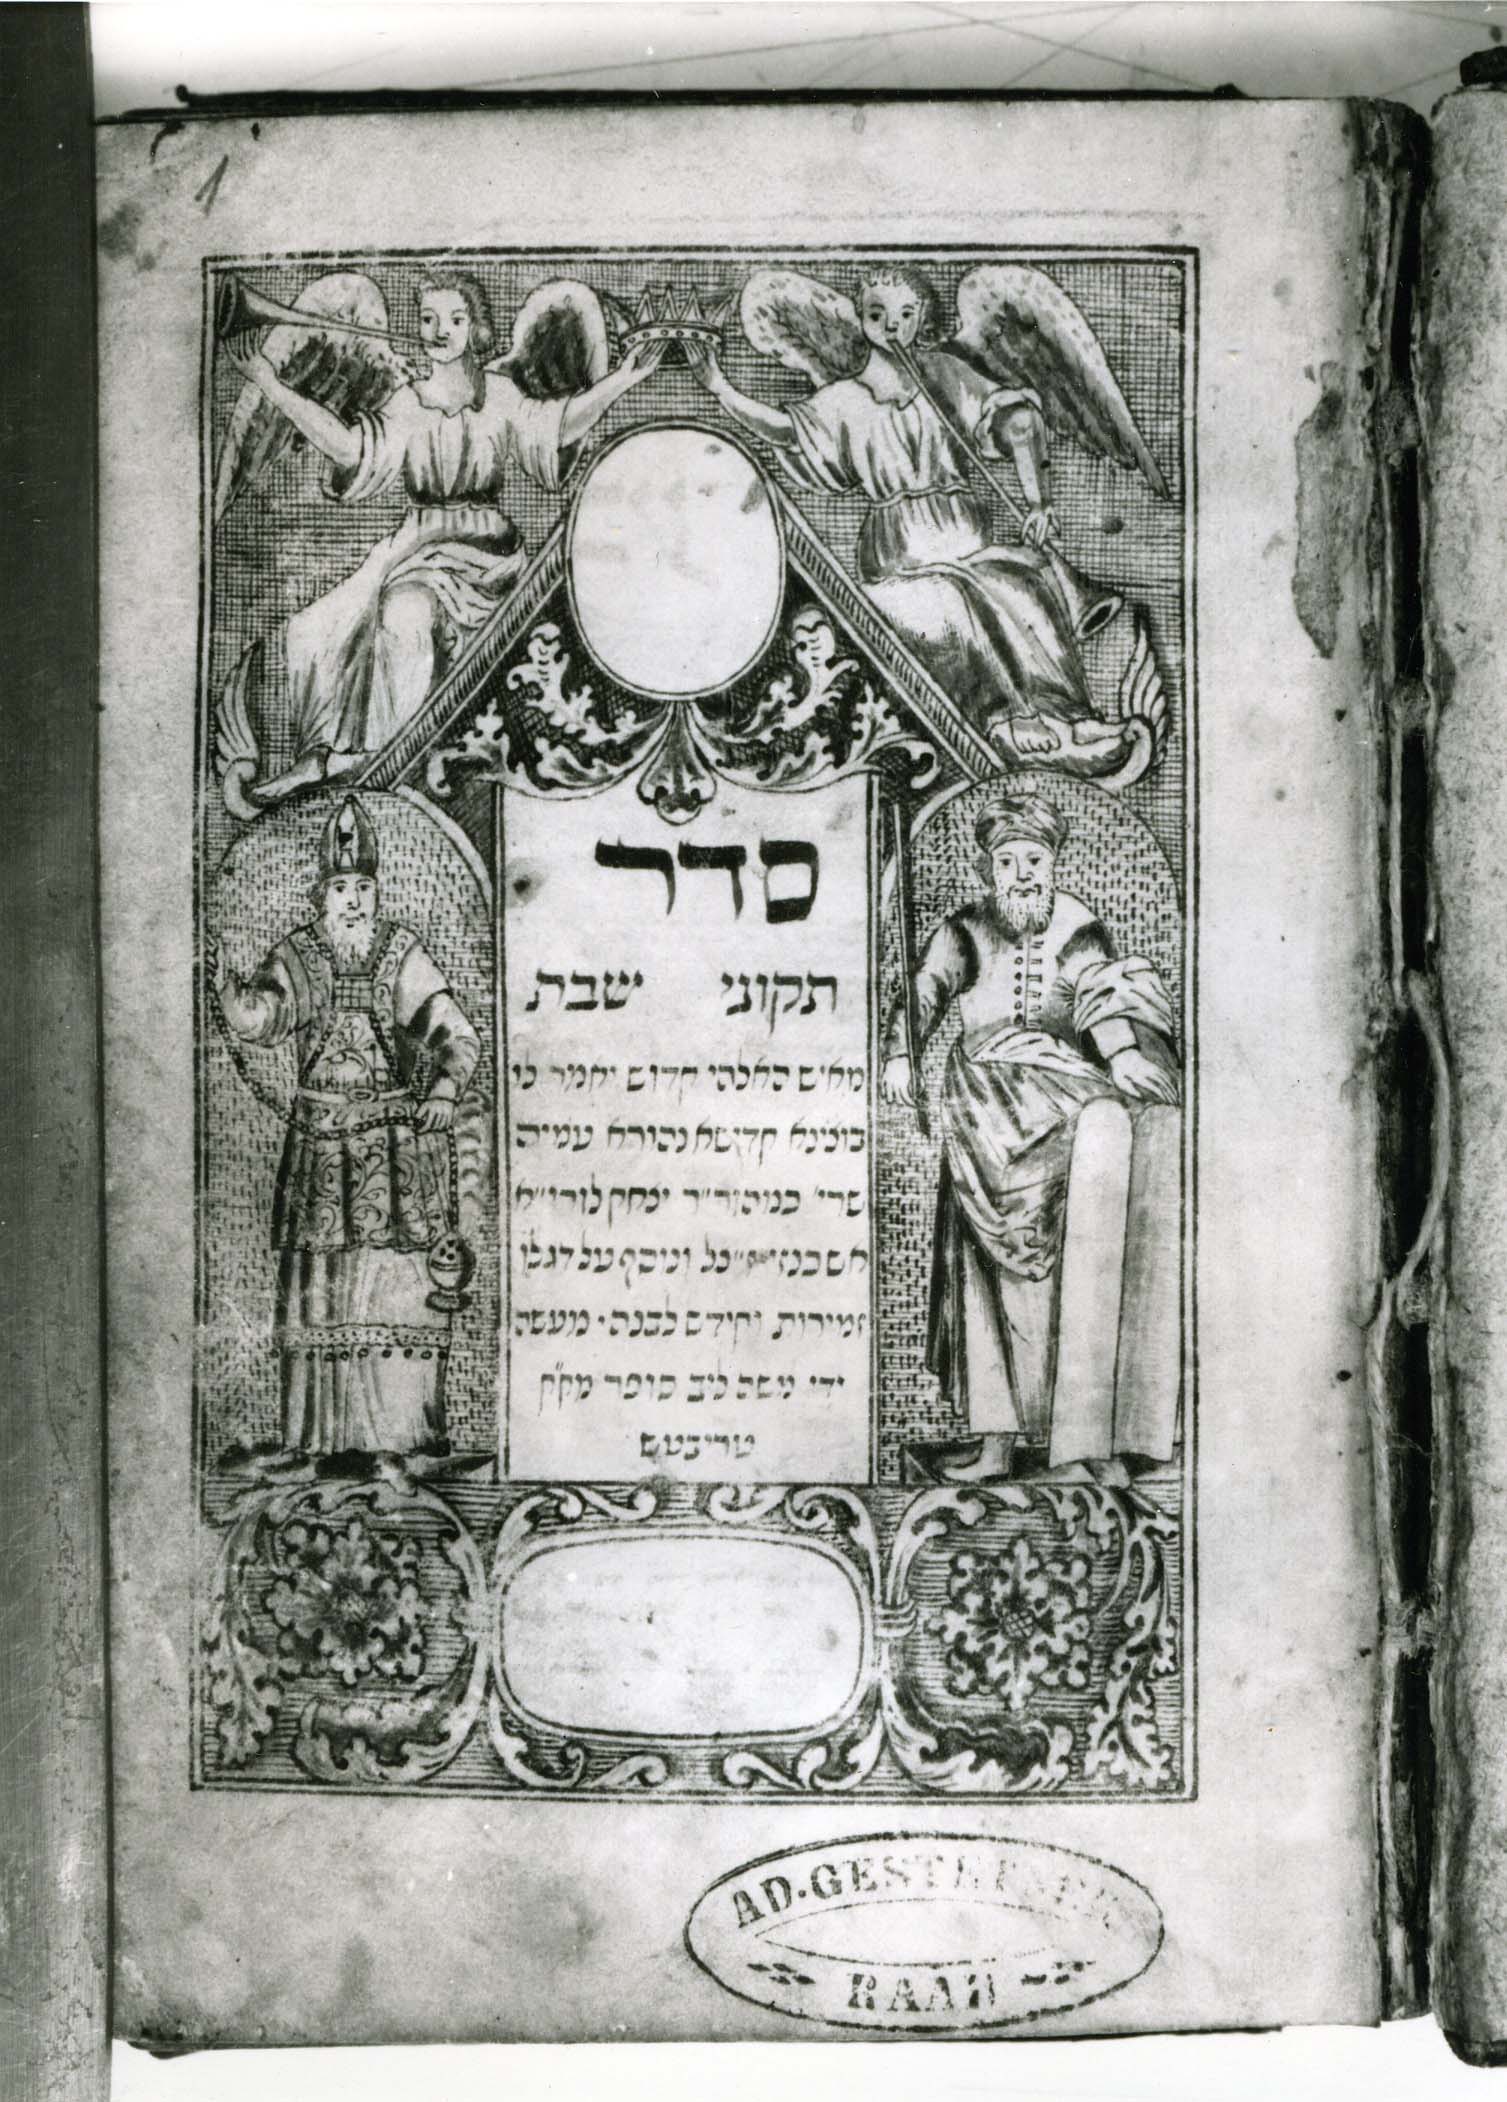 1
סדר
תקוני שבת
מאיש האלהי קדוש יאמר לו
בוצינא קדישא נהורא עמיה
שרי׳ כמהור״ר יצחק לורי״א
אשכנזי ז״ל ונוסף על דגלו
זמירות וקידוש לבנה· מעשה
ידי משה ליב סופר מק״ק
טריבטש
AD·GESTETNER
RAAB